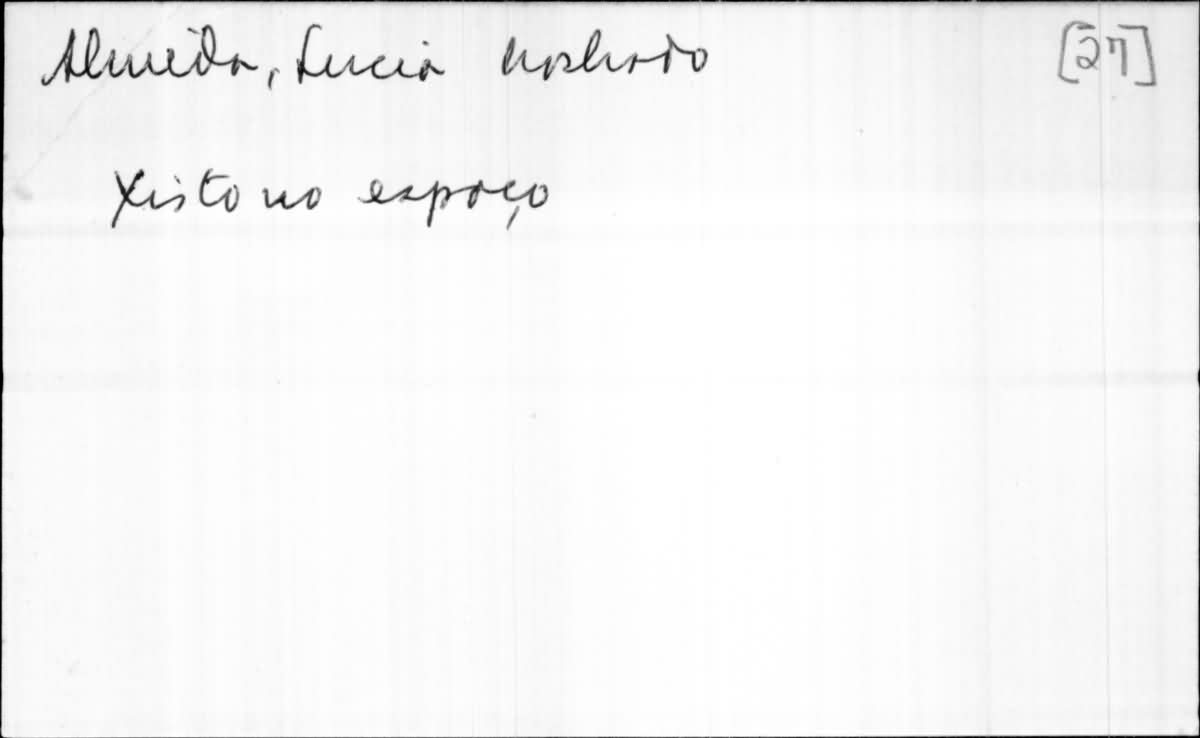 Almeida, Lucia Machado [27]
Xisto no espaço